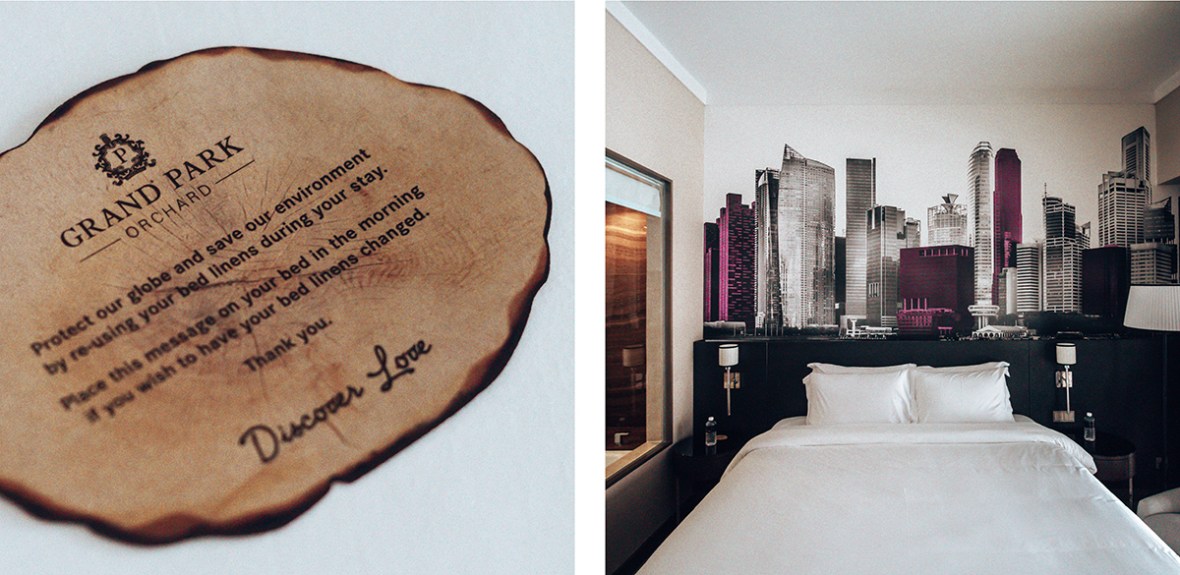 P
GRAND PARK
ORCHARD
Protect our globe and save our environment
by re-using your bed linens during your stay.
Place this message on your bed in the morning
if you wish to have your bed linens changed.
Thank you.
Discover Love